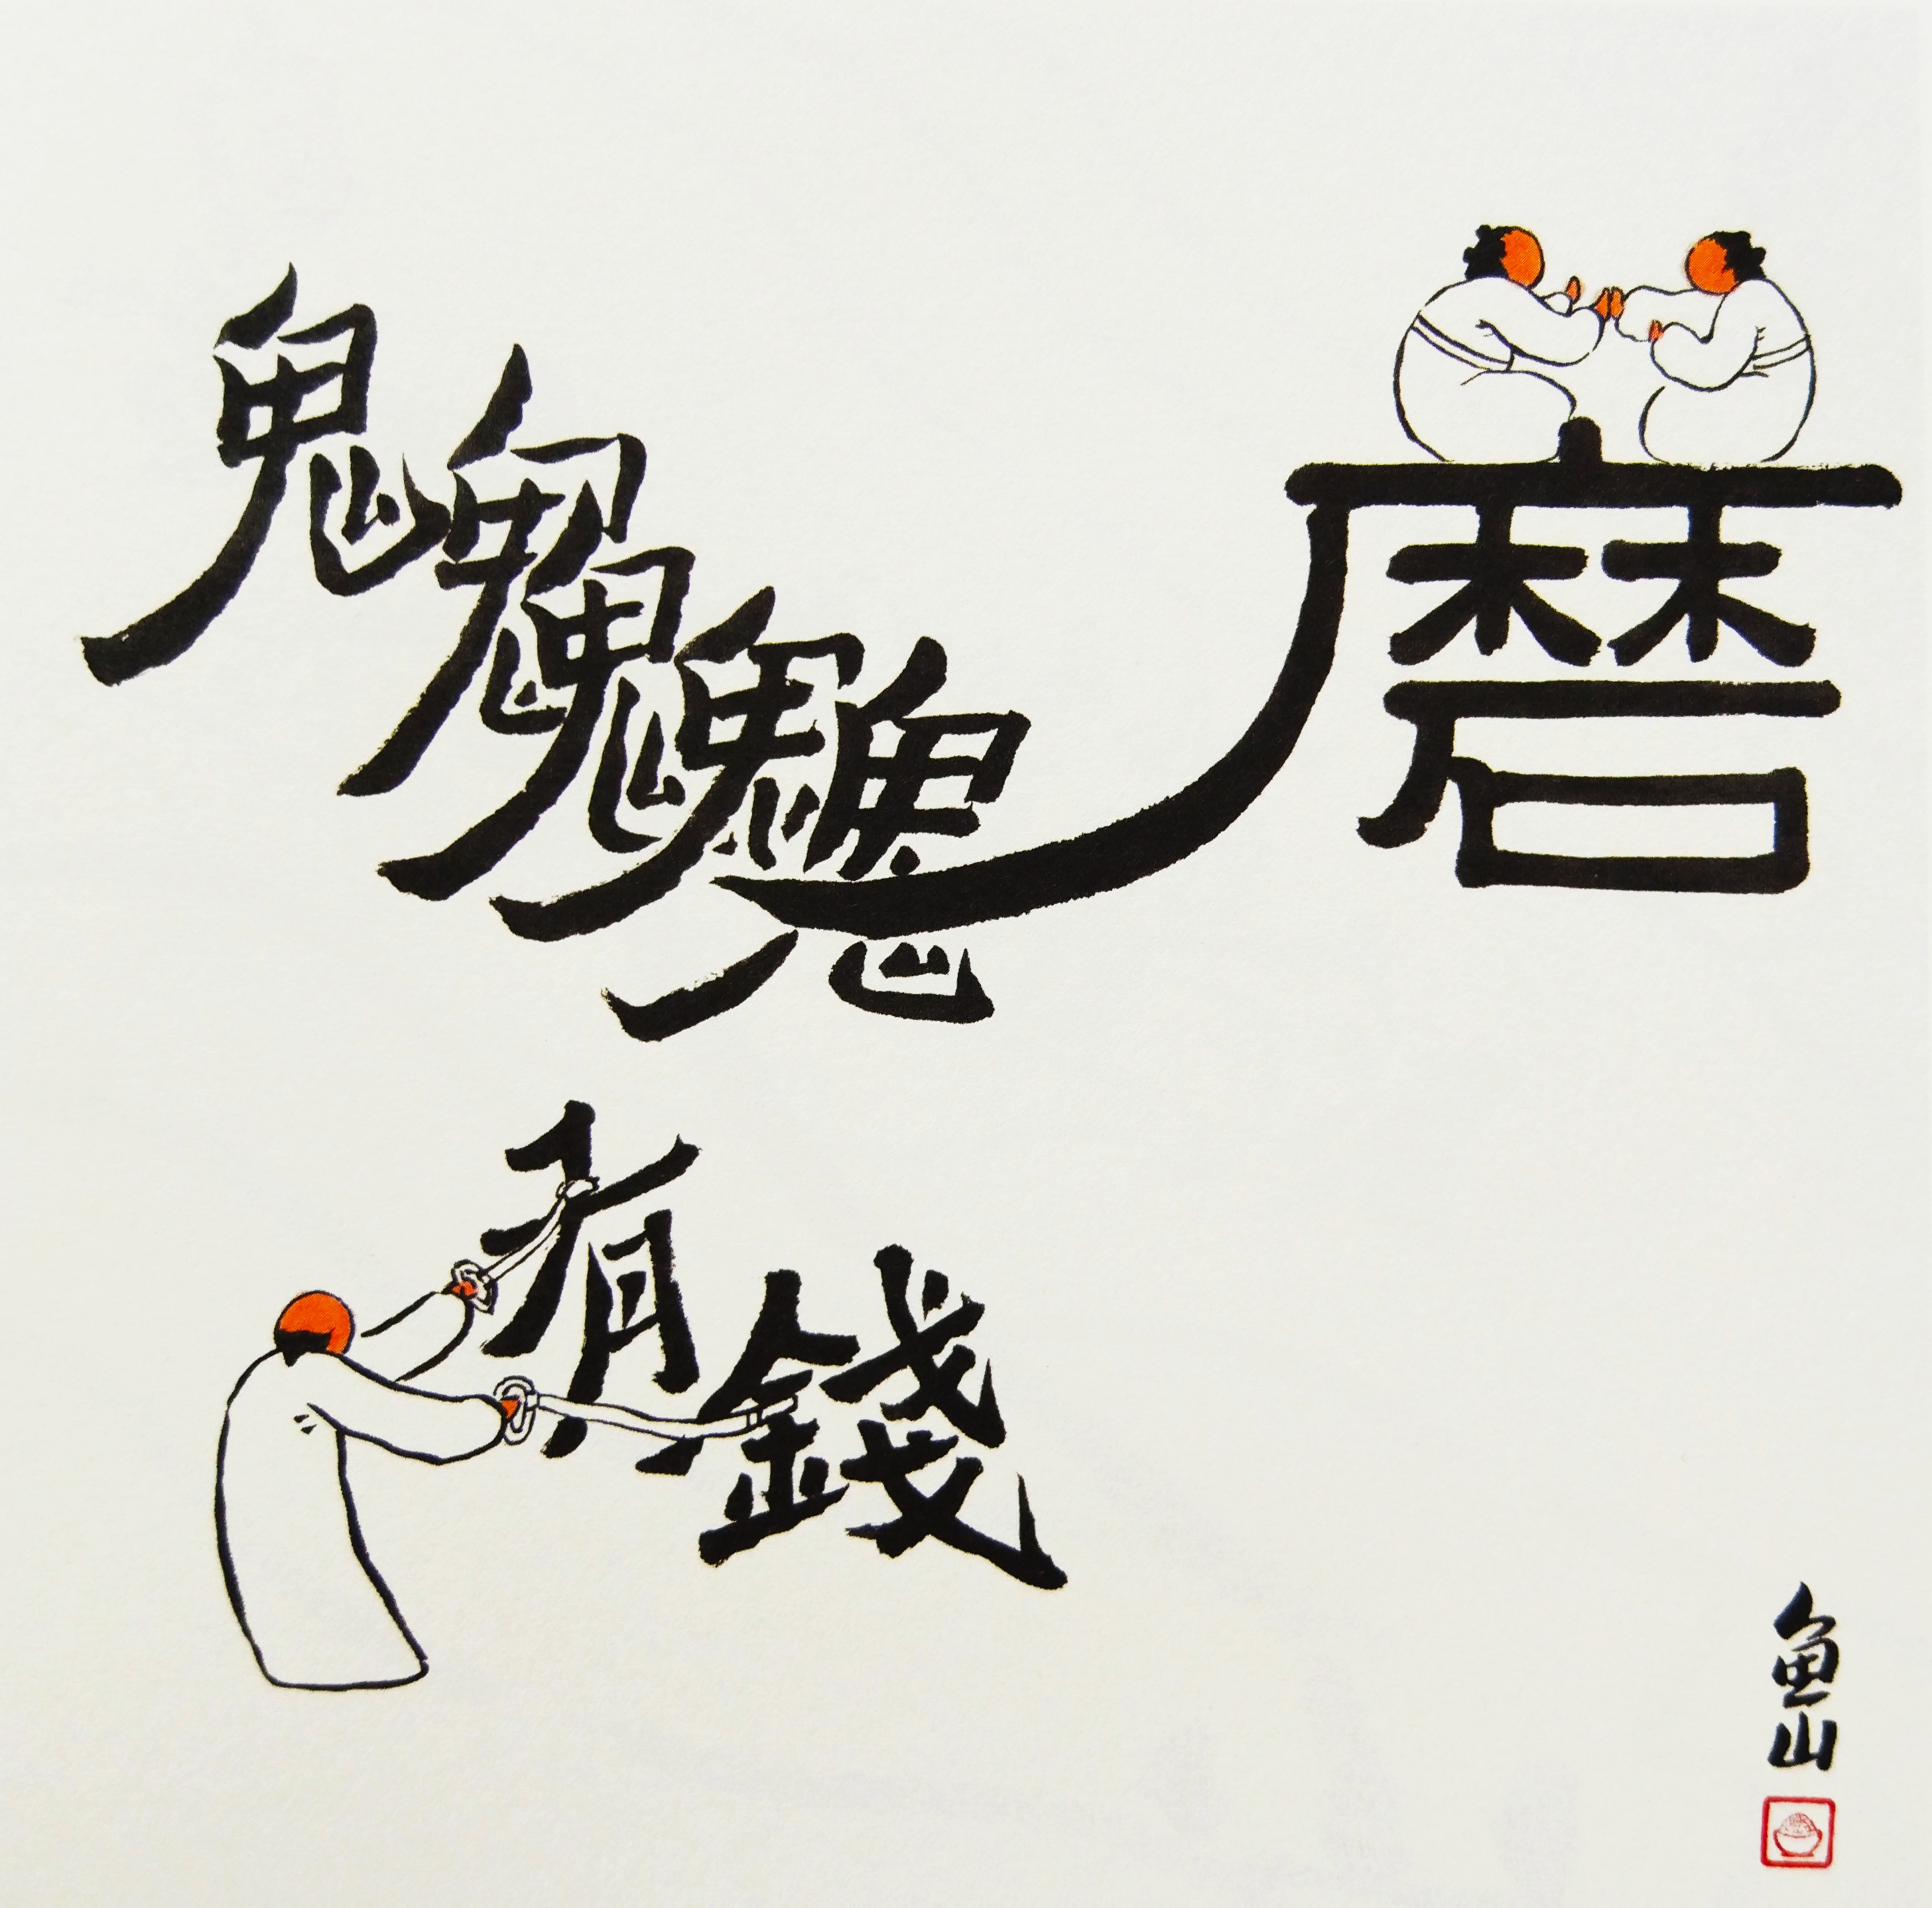 鬼鬼鬼鬼鬼磨
有錢
鱼山